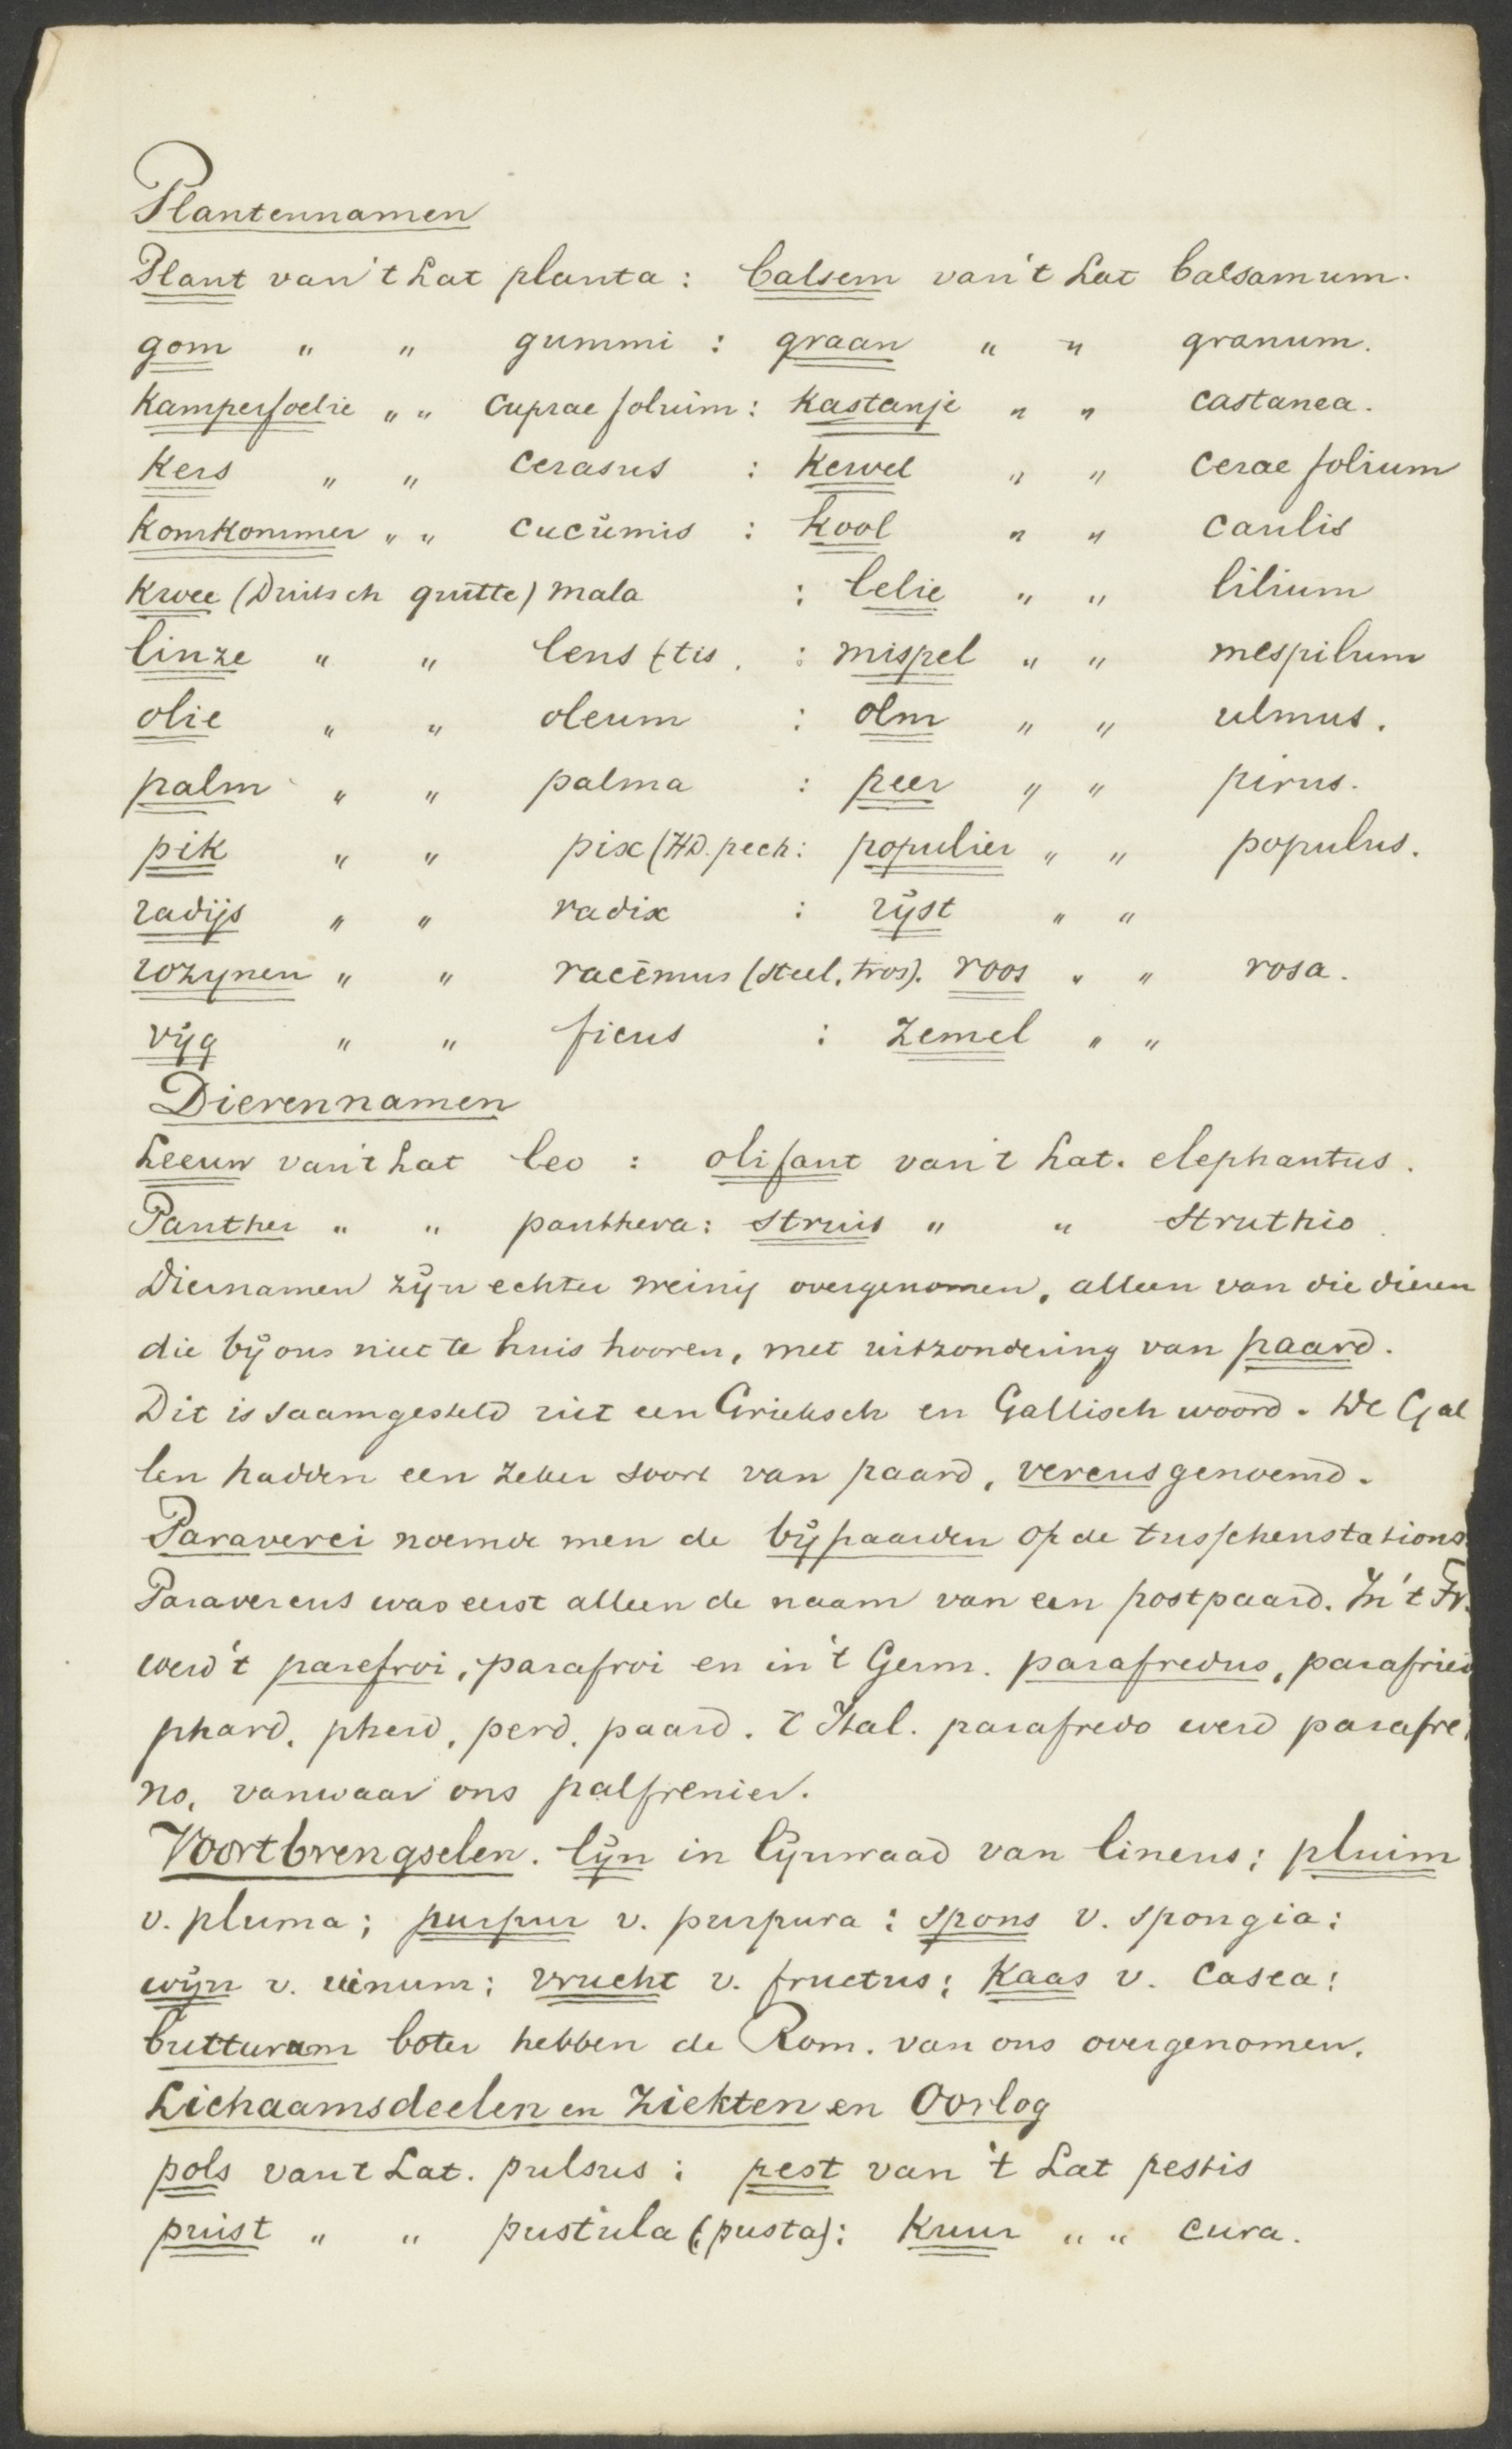 Plantennamen
Plant van 't Lat planta : balsem van 't Lat balsamum.
gom " " gummi : graan " " granum.
Kamperfoelie " " Cuprae folium : Kastanje " " castanea.
Kers " " cerasus : Kervel " " cerae folium
Komkommer " " cucumis : kool " " caulis
Kwee (Duitsch quitte) mala : lelie " " lilium
linze " " lens (tis. : mispel " " mespilum
olie " " oleum : olm " " ulmus.
palm " " palma : peer " " pirus.
pik " " pix (HD. pech : populier " " populus.
radijs " " radix : rijst " "
rozynen " " racēmus (steel, tros). roos " " rosa.
vijg " " ficus : zemel " "
Dierennamen
Leeuw van 't Lat leo : olifant van 't Lat. elephantus.
Panther " " panthera : struis " " struthio
Diernamen zijn echter weinig overgenomen, alleen van die dieren
die bij ons niet te huis hooren, met uitzondering van paard.
Dit is saamgesteld uit een Grieksch en Gallisch woord. De Gal
len hadden een zeker soort van paard, vereus genoemd.
Paraverei noemde men de bijpaarden op de tusschenstations
Paravereus was eerst alleen de naam van een postpaard. In 't Fr.
werd 't parefroi, parafroi en in 't Germ. parafredus, parafried
phard, pherd, perd, paard. 't Ital. parafredo werd parafre
no, vanwaar ons palfrenier.
Voortbrengselen. lijn in lijnwaad van lineus; pluim
v. pluma; purpur v. purpura : spons v. spongia :
wijn v. vinum; vrucht v. fructus; Kaas v. casea;
butturum boter hebben de Rom. van ons overgenomen.
Lichaamsdeelen en Ziekten en Oorlog
pols van 't Lat. pulsus ; pest van 't Lat pestis
puist " " pustula (pusta) : Kuur " " cura.